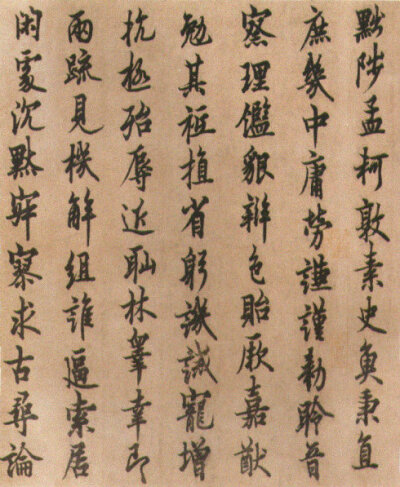 黜陟孟柯敦素史魚秉直
庶幾中庸勞謙謹勑聆音
察理鑑貌辯色貽厥嘉猷
勉其祗植省躬譏誡寵增
抗極殆辱近恥林皋幸即
兩疏見機解組誰逼索居
閑處沉默寂寥求古尋論